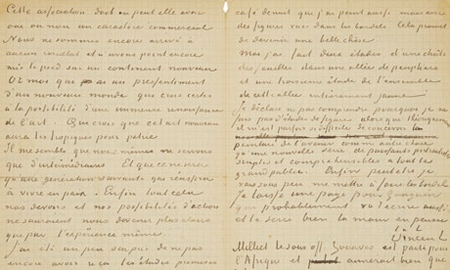 Cette association dont on peut elle avoir
oui ou non un caractère commercial
Nous ne sommes encore arrivé à
aucun résultat et n'avons point encore
mis le pied sur un continent nouveau
Or moi qui ai un pressentiment
d'un nouveau monde que crois certes
à la possibilité d'une immense renaissance
de l'art. Que crois que cet art nouveau
aura les tropiques pour patrie.
Il me semble que nous mêmes ne servons
que d'intermédiaires. Et que ce ne sera
qu'une génération suivante qui réussira
à vivre en paix. Enfin tout cela
nos devoirs et nos possibilités d'action
ne sauraient nous devenir plus clairs
que par l'expérience même.
J'ai été un peu surpris de ne pas
encore avoir reçu les études promises
café devant que j'ai peint aussi
des figures vues dans les bordels. Cela promet
de devenir une belle chose
Moi j'ai fait deux études d'une chute
des feuilles dans une allée de peupliers
et une troisième étude de l'ensemble
de cette allée entièrement jaune
Je déclare ne pas comprendre pourquoi je ne
fais pas d'études de figure alors que théoriquement
il m'est parfois si difficile de concevoir la
peinture de l'avenir comme autre chose
qu'une nouvelle série de puissants portraitistes
simples et compréhensibles à tout le
grand public. Enfin peut être je
vais sous peu me mettre à faire les bordels
Je laisse une page pour Gauguin
qui probablement va t'écrire aussi
et te serre bien la main en pensée
t. à t. Vincent
Milliet le sous off. Zouaves est parti pour
l'Afrique et aimerait bien que